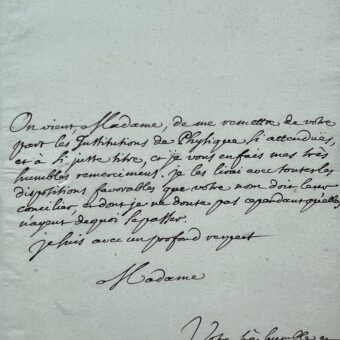 On vient, Madame, de me remettre de votre
part les Institutions de Physique si attendües,
et à si juste titre, et je vous en fais mes très
humbles remerciments. je les lirai avec toutes les
dispositions favorables que votre nom doit leur
concilier, et dont je ne doute pas cependant qu'elles
n'ayent de quoi se passer.
je suis avec un profond respect
Madame
Votre très humble et